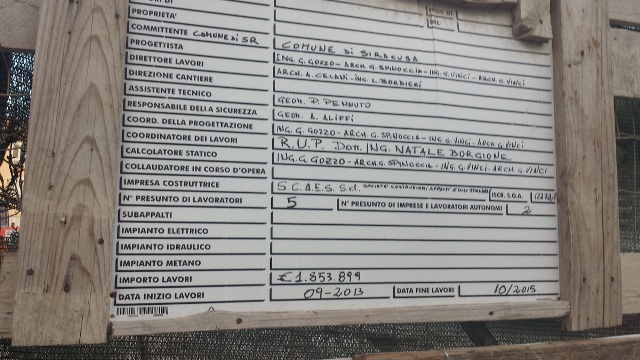 PROPRIETA'
COMMITTENTE COMUNE di SR
PROGETTISTA COMUNE di SIRACUSA
DIRETTORE LAVORI ING. G. GOZZO - ARCH. G. SPINOCCIA - ING. G. VINCI - ARCH. G. VINCI
DIREZIONE CANTIERE ARCH. A. CELANI - ING. L. BORDIERI
ASSISTENTE TECNICO
RESPONSABILE DELLA SICUREZZA GEOM. P. PENNUTO
COORD. DELLA PROGETTAZIONE GEOM. A. ALIFFI
COORDINATORE DEI LAVORI ING. G. GOZZO - ARCH. G. SPINOCCIA - ING. G. VINCI - ARCH. G. VINCI
CALCOLATORE STATICO R.U.P. Dott. ING. NATALE BORGIONE
COLLAUDATORE IN CORSO D'OPERA ING. G. GOZZO - ARCH. G. SPINOCCIA - ING. G. VINCI - ARCH. G. VINCI
IMPRESA COSTRUTTRICE S.C.A.E.S. Srl ISCR. S.O.A.
N° PRESUNTO DI LAVORATORI 5 N° PRESUNTO DI IMPRESE E LAVORATORI AUTONOMI 2
SUBAPPALTI
IMPIANTO ELETTRICO
IMPIANTO IDRAULICO
IMPIANTO METANO
IMPORTO LAVORI € 1.853.899
DATA INIZIO LAVORI 09-2013 DATA FINE LAVORI 10/2015